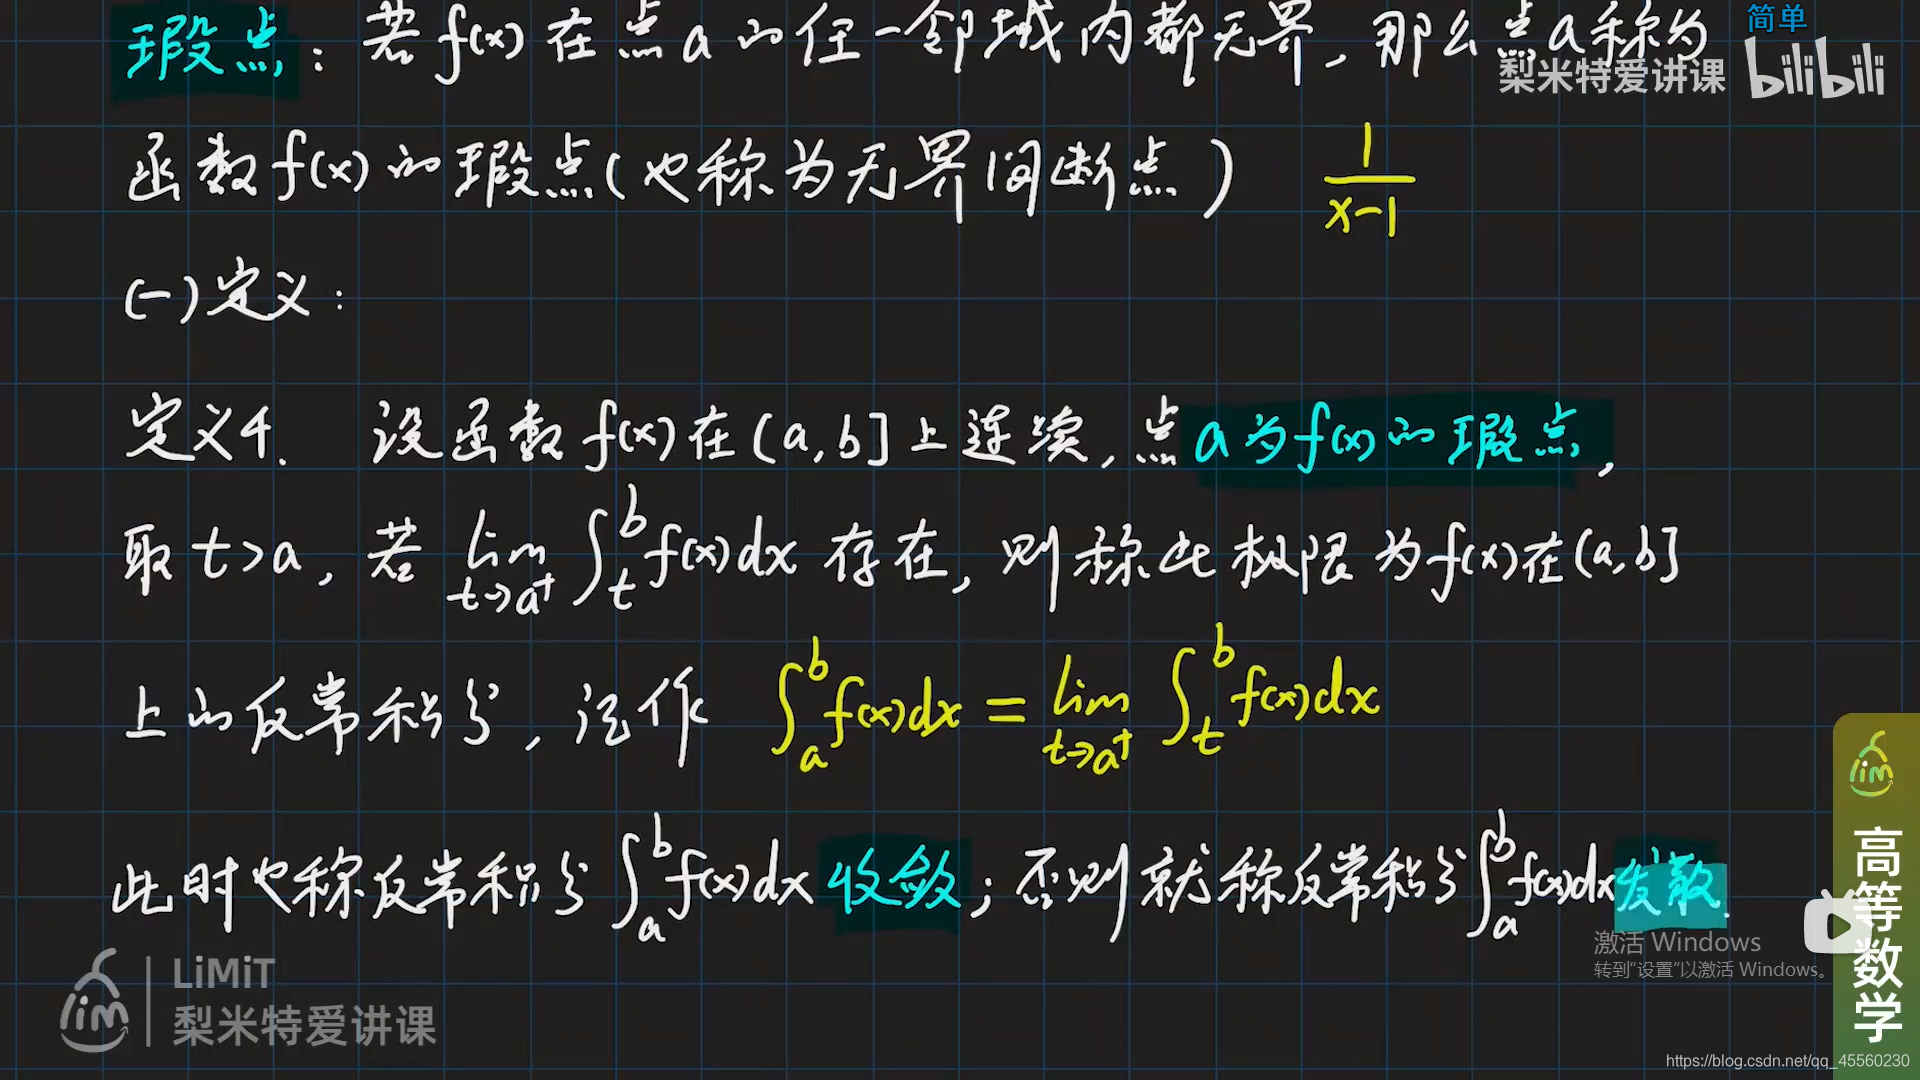 简单
瑕点：若f(x)在点a的任一邻域内都无界，那么点a称为
梨米特爱讲课 bilibili
函数f(x)的瑕点(也称为无界间断点) 1/(x-1)
(一)定义：
定义4. 设函数f(x)在(a,b]上连续,点a为f(x)的瑕点,
取t>a,若 lim_{t→a⁺} ∫_t^b f(x)dx 存在,则称此极限为f(x)在(a,b]
上的反常积分,记作 ∫_a^b f(x)dx = lim_{t→a⁺} ∫_t^b f(x)dx
此时也称反常积分∫_a^b f(x)dx收敛;否则就称反常积分∫_a^b f(x)dx发散.
激活 Windows
转到“设置”以激活 Windows。
LiMiT
梨米特爱讲课
lim
lim
高等数学
https://blog.csdn.net/qq_45560230